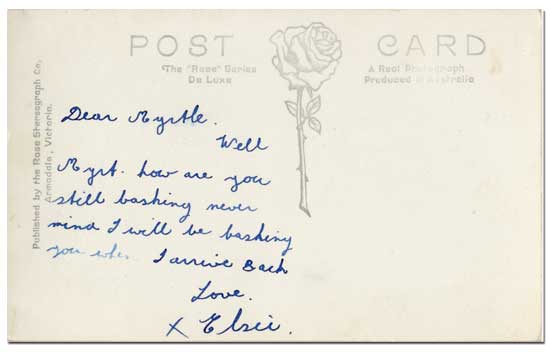 POST CARD
The "Rose" Series
De Luxe
A Real Photograph
Produced in Australia
Published by the Rose Stereograph Co.
Armadale, Victoria.
Dear Myrtle.
Well
Myrt. how are you
still bashing never
mind I will be bashing
you when I arrive Back
Love.
x Elsie.